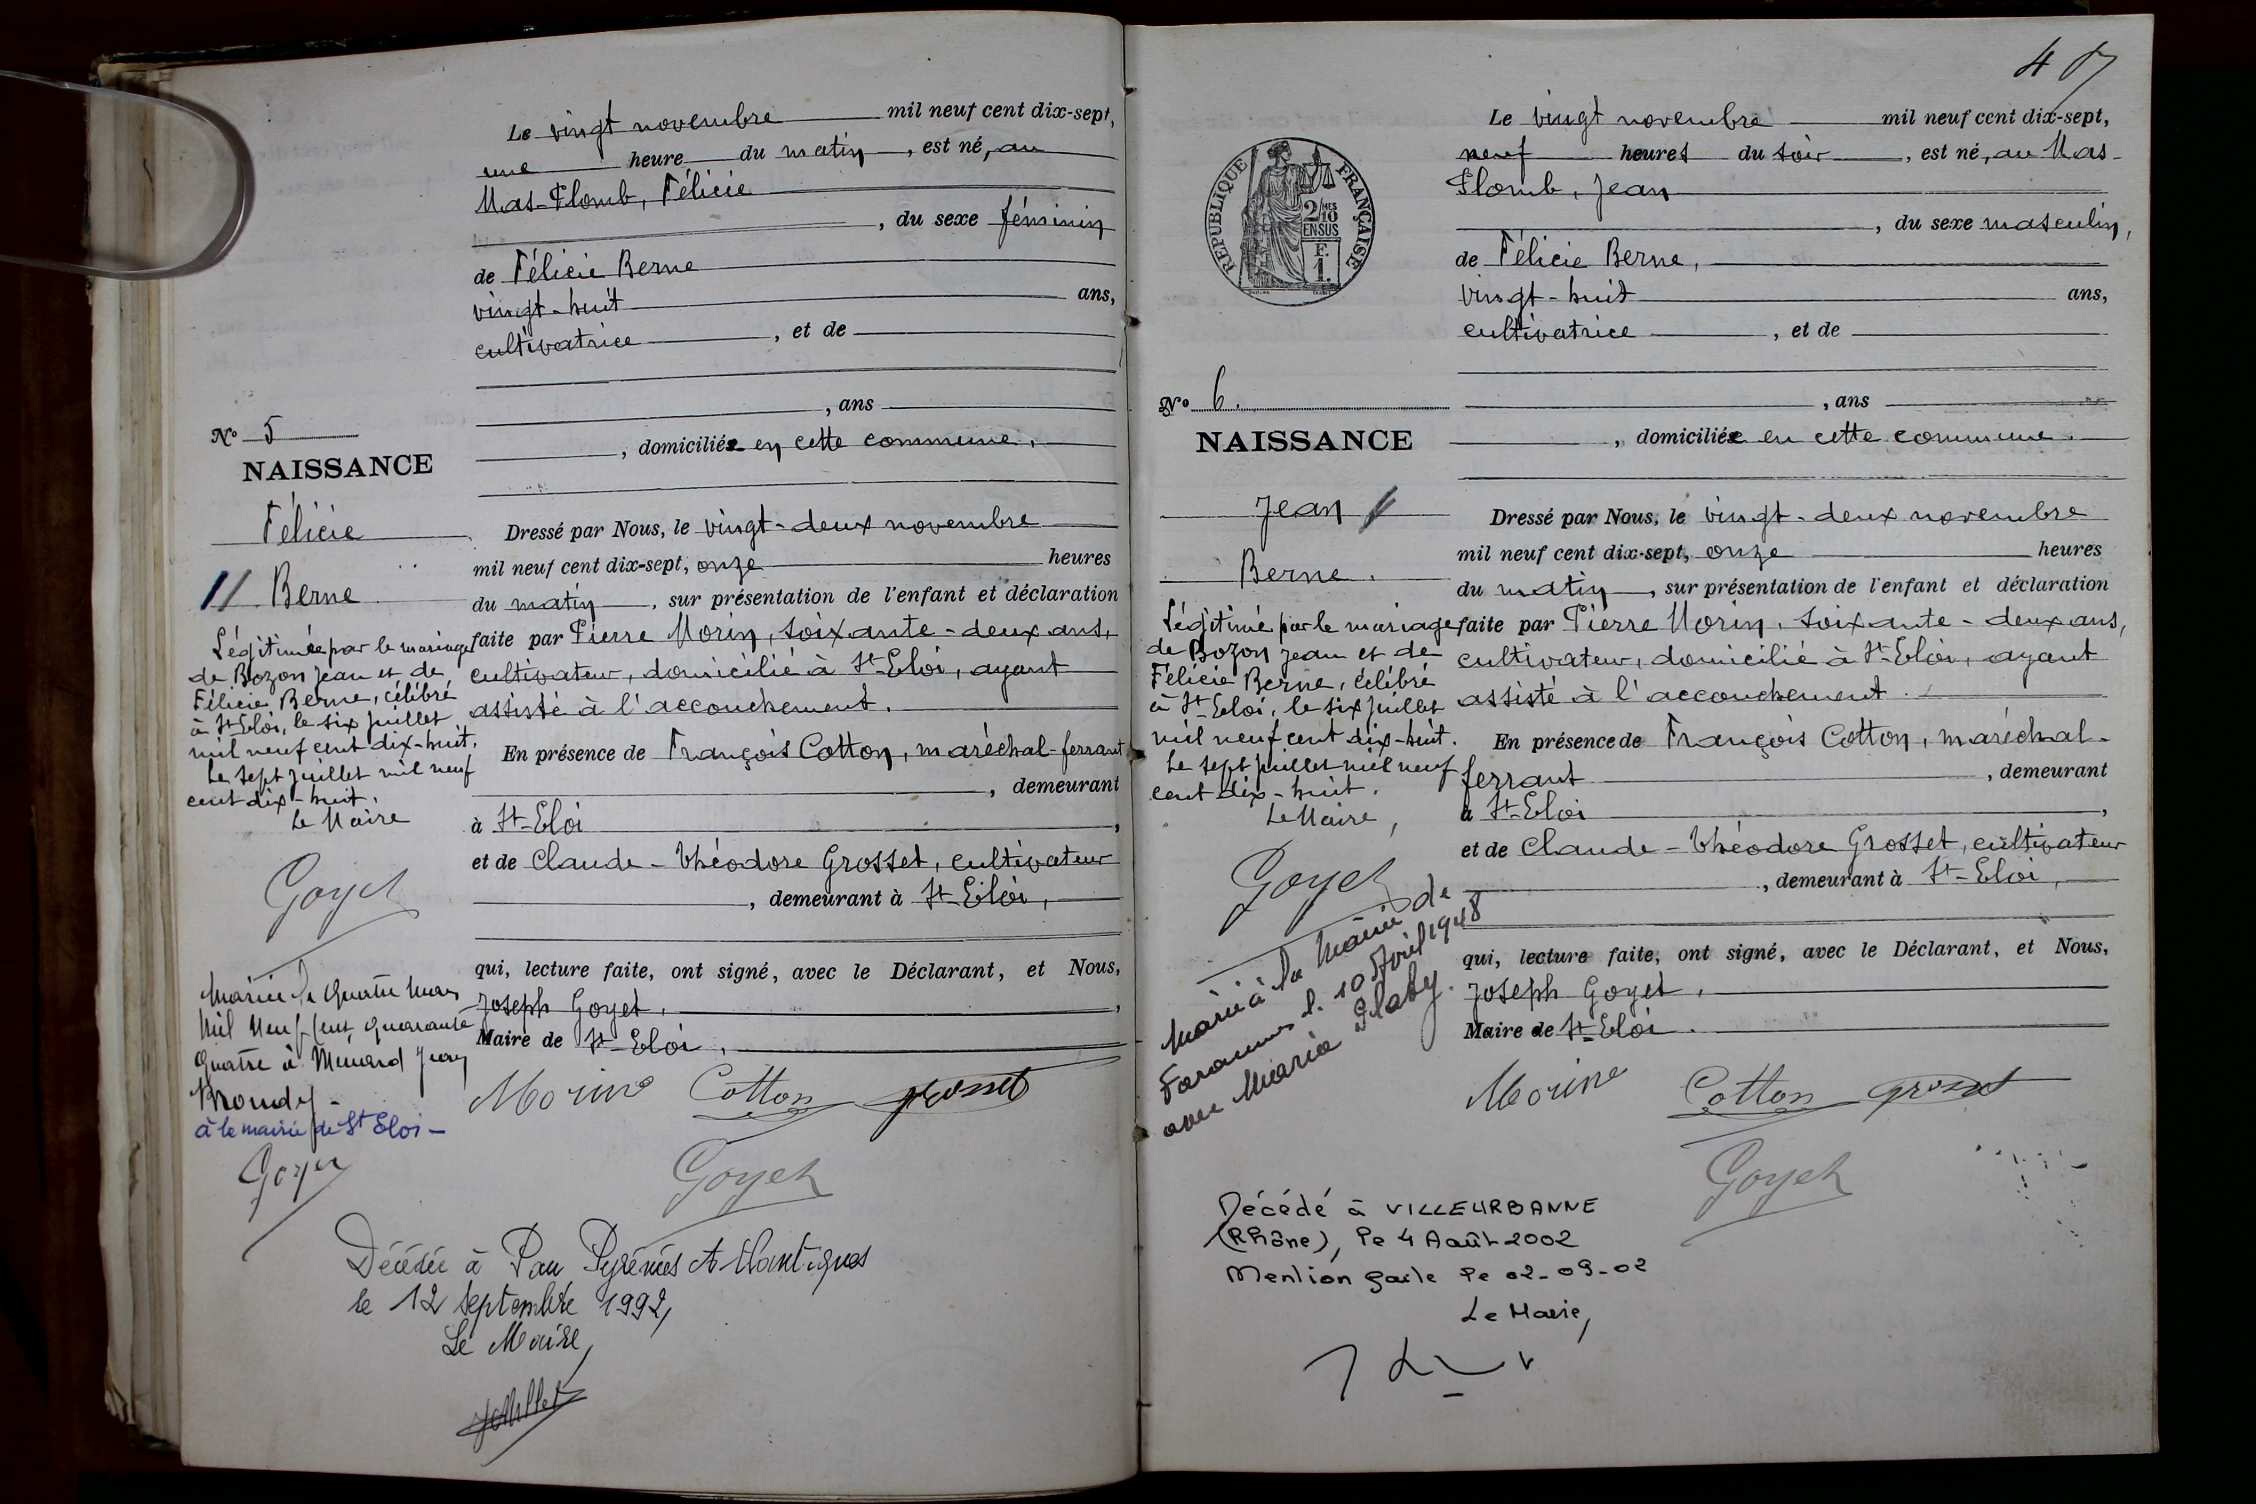 Le vingt novembre mil neuf cent dix-sept,
une heure du matin, est né, au
Mas-Plomb, Félicie
, du sexe féminin
de Félicie Berne
vingt-huit ans,
cultivatrice, et de
, ans
, domiciliée en cette commune.
Nº 5
NAISSANCE
Félicie
Berne
Légitimée par le mariage
de Bozon Jean et de
Félicie Berne, célébré
à St-Eloi, le six juillet
mil neuf cent dix-huit.
Le sept juillet mil neuf
cent dix-huit.
Le Maire
Goyet
Mariée le quatre mars
mil neuf cent quarante
quatre à Menard Jean
à la mairie de St Eloi -
Goyet
Dressé par Nous, le vingt-deux novembre
mil neuf cent dix-sept, onze heures
du matin, sur présentation de l'enfant et déclaration
faite par Pierre Morin, soixante-deux ans,
cultivateur, domicilié à St-Eloi, ayant
assisté à l'accouchement.
En présence de François Cotton, maréchal-ferrant
, demeurant
à St-Eloi,
et de Claude-Théodore Grosset, cultivateur
, demeurant à St-Eloi,
qui, lecture faite, ont signé, avec le Déclarant, et Nous,
Joseph Goyet,
Maire de St-Eloi.
Morin Cotton Grosset
Goyet
Décédée à Pau Pyrénées Atlantiques
le 12 septembre 1992,
Le Maire,
4
REPUBLIQUE FRANÇAISE
2/10 MES
EN SUS
F.
1.
Le vingt novembre mil neuf cent dix-sept,
neuf heures du soir, est né, au Mas-
Plomb, Jean
, du sexe masculin,
de Félicie Berne,
vingt-huit ans,
cultivatrice, et de
, ans
, domiciliée en cette commune.
Nº 6.
NAISSANCE
Jean
Berne.
Légitimé par le mariage
de Bozon Jean et de
Félicie Berne, célébré
à St-Eloi, le six juillet
mil neuf cent dix-huit.
Le sept juillet mil neuf
cent dix-huit.
Le Maire,
Goyet
Marié à la Mairie de
Faramans le 10 Avril 1948
avec Maria Platy.
Dressé par Nous, le vingt-deux novembre
mil neuf cent dix-sept, onze heures
du matin, sur présentation de l'enfant et déclaration
faite par Pierre Morin, soixante-deux ans,
cultivateur, domicilié à St-Eloi, ayant
assisté à l'accouchement.
En présence de François Cotton, maréchal-
ferrant, demeurant
à St-Eloi,
et de Claude-Théodore Grosset, cultivateur
, demeurant à St-Eloi,
qui, lecture faite, ont signé, avec le Déclarant, et Nous,
Joseph Goyet,
Maire de St-Eloi.
Morin Cotton Grosset
Goyet
Décédé à VILLEURBANNE
(Rhône), le 4 Août 2002
Mention faite le 02-09-02
Le Maire,